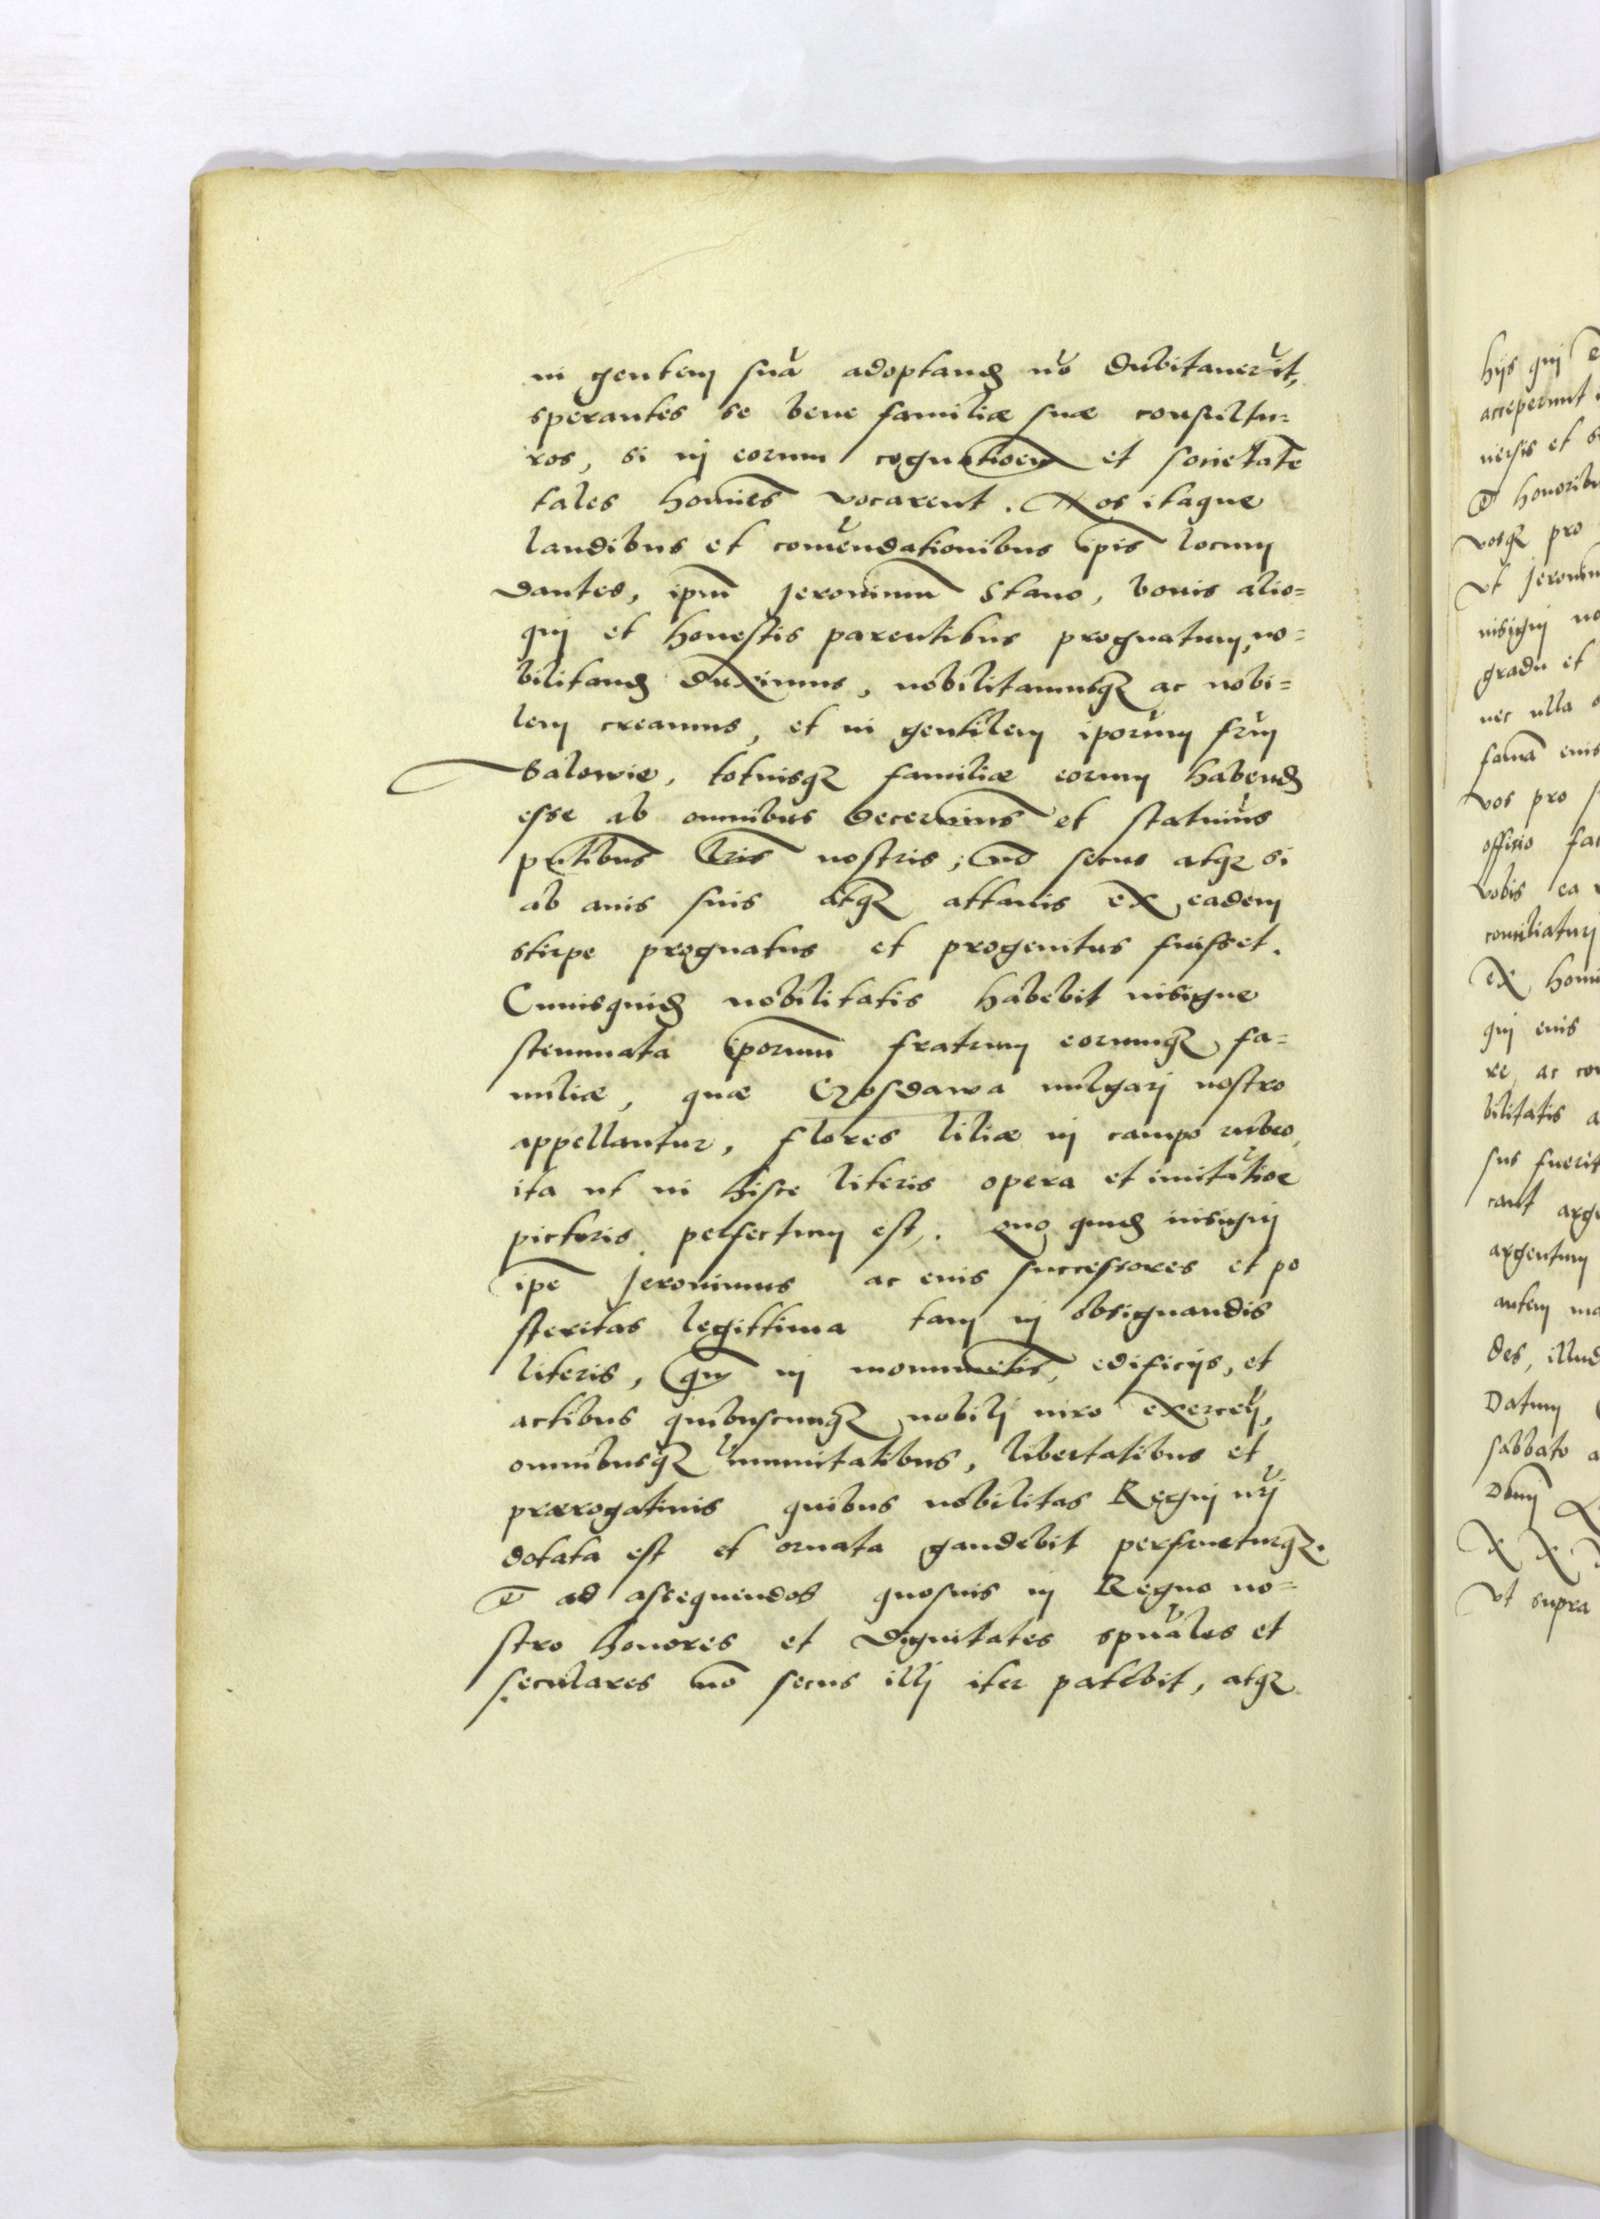 in gentem suã adoptand nõ dubitauerũt,
sperantes se bene familiæ suæ consultu=
ros, si in eorum cognatioem et societatẽ
tales homiẽs vocarent. Nos itaque
laudibus et comẽndationibus ipis locum
dantes, ipm Jeronimum Stano, bonis alio=
qui et honestis parentibus prognatum, no=
bilitand duximus, nobilitamusq ac nobi=
lem creamus, et in gentilem iporum frũm
Balowie, totiusq familiæ eorum habend
esse ab omnibus decernims et statuim̃s
pntibus lris nostris; nõ secus atq si
ab auis suis atq attauis ex eadem
stirpe prognatus et progenitus fuisset.
Cuiusquid nobilitatis habebit insigne
stemmata iporum fratrum eorumq fa=
miliæ, quæ Czosdawa uulgari nostro
appellantur, flores liliæ in campo rubeo,
ita ut in hisce literis opera et imitãtioe
pictoris perfectum est. Quo quid insigni
ipe Jeronimus ac eius successores et po
steritas legittima tam in obsignandis
literis, qm in monumẽtis, edificijs, et
actibus quibuscunq nobili uiro exerceri,
omnibusq immunitatibus, libertatibus et
prærogatiuis quibus nobilitas Regni nri
dotata est et ornata gaudebit perfrueturq.
Et ad assequendos quosuis in Regno no=
stro honores et dignitates spũales et
seculares nõ secus illi iter patebit, atq
hijs qui
acceperunt
uersis et
Et honoribu
vosq pro
vt Jeronim
insigni no
gradu et
nec ulla
famã eius
vos pro
officio fa
vobis ea
conciliaturi
ex homi
qui eius
re, ac con
bilitatis a
sus fuerit
cant arg
argentum
autem ma
des, illud
Datum
sabbato a
Dñm
X X
vt supra